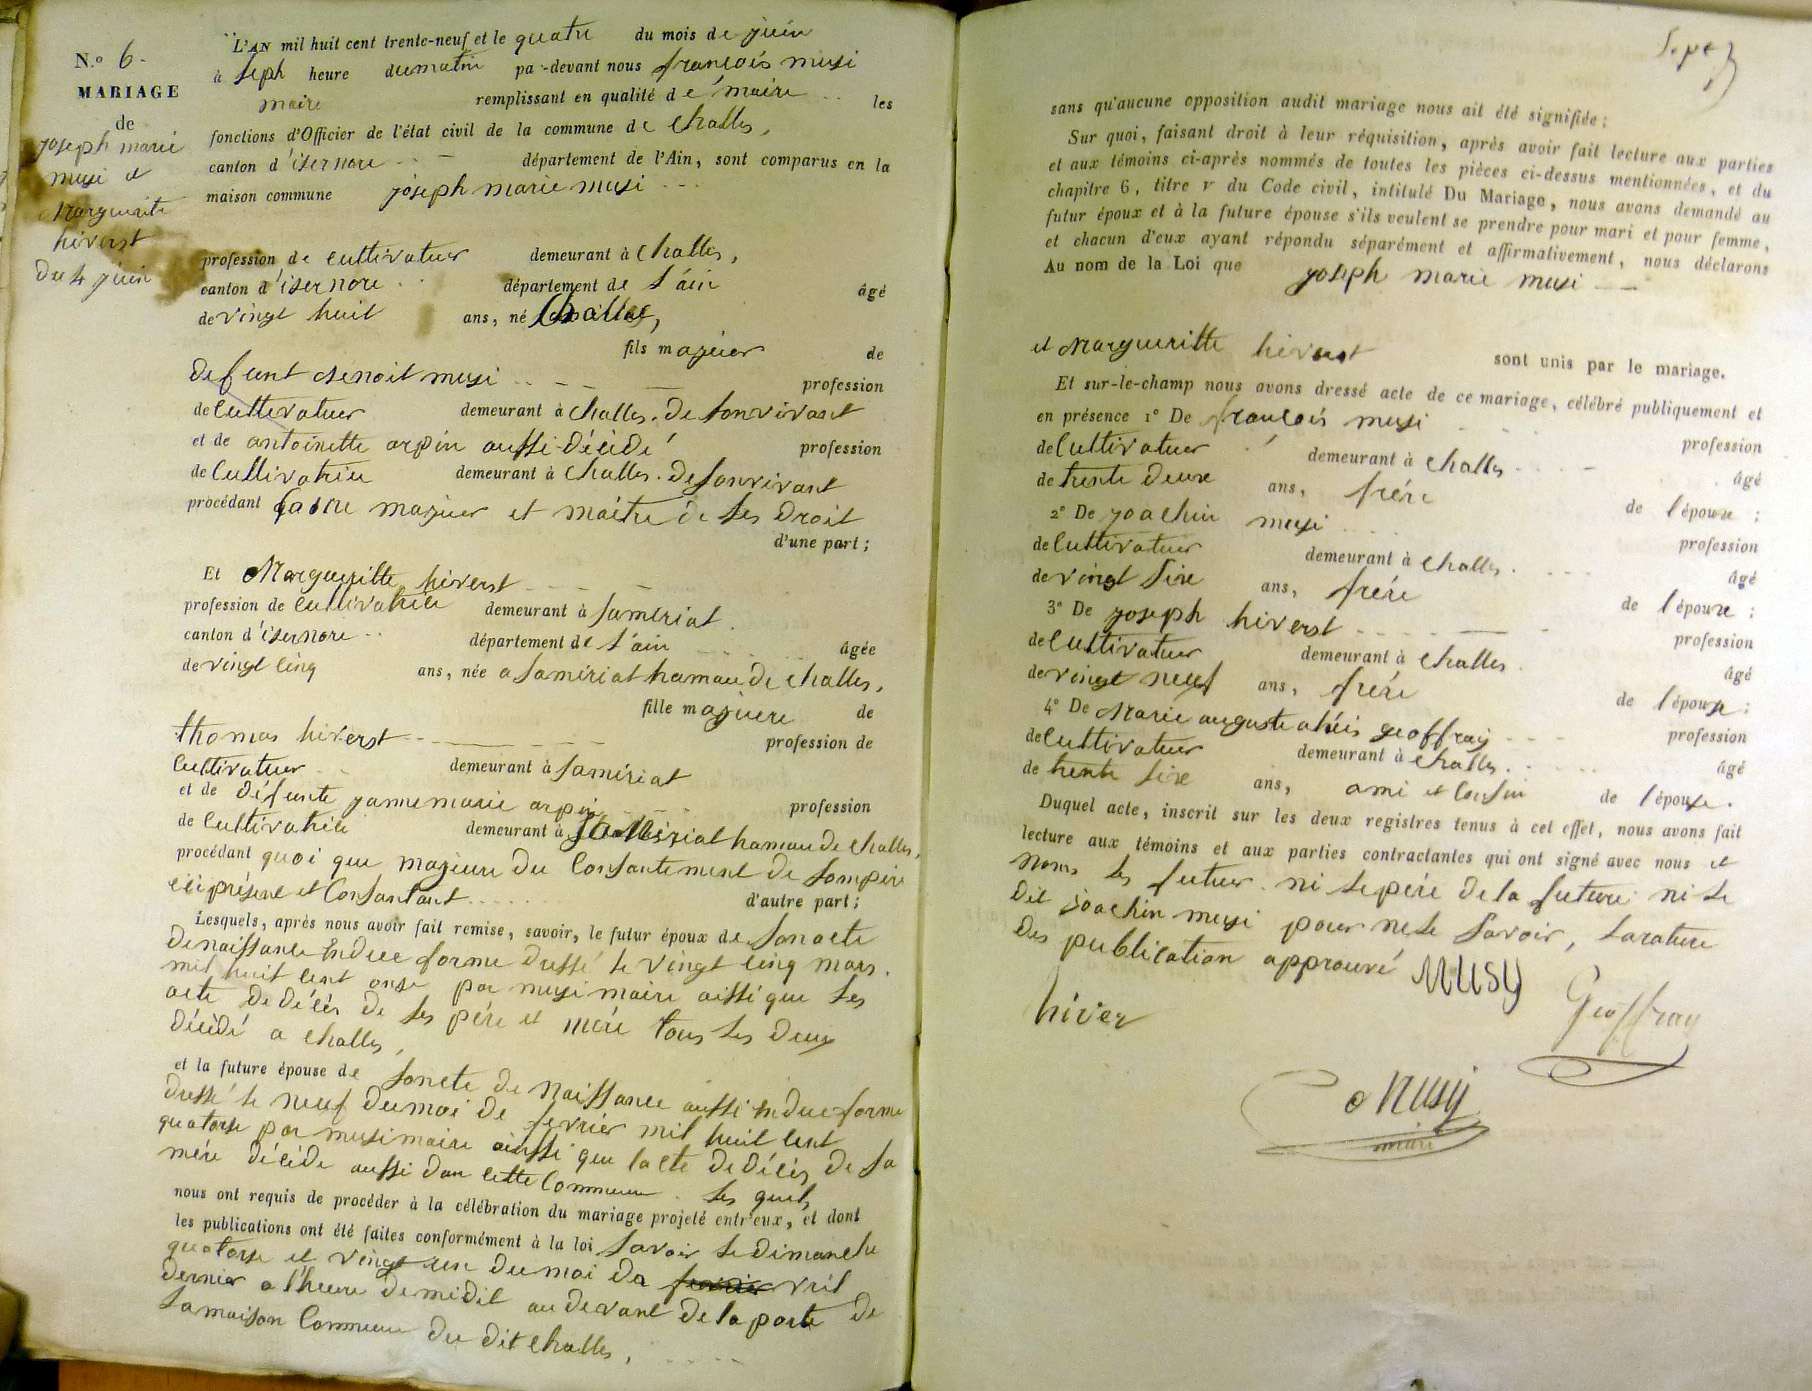 N.o 6.
MARIAGE
de
joseph marie
musi et
Margueritte
hiverst
du 4 juin
L'AN mil huit cent trente-neuf et le quatre du mois de juin
à seph heure du matin par-devant nous françois musi
maire remplissant en qualité de maire les
fonctions d'Officier de l'état civil de la commune de Challes,
canton d'isernore département de l'Ain, sont comparus en la
maison commune joseph marie musi
profession de cultivateur demeurant à Challes,
canton d'isernore département de l'ain âgé
de vingt huit ans, né Challes,
fils majeur de
defunt Benoit musi profession
de cultivateur demeurant à Challes. de sonvivant
et de antoinette arpin aussi décédé profession
de Cultivatrice demeurant à Challes. de sonvivant
procédant comme majeur et maitre de ses droit
d'une part;
Et Margueritte hiverst
profession de cultivatrice demeurant à samériat.
canton d'isernore département de l'ain âgée
de vingt cinq ans, née a samériat hamau de challes,
fille majeure de
thomas hiverst profession de
Cultivateur demeurant à samériat
et de défunte jannemarie arpin profession
de Cultivatrice demeurant à samériat hamau de challes,
procédant quoi que majeure du Consantement de sompère
ici présent et Consantant d'autre part;
Lesquels, après nous avoir fait remise, savoir, le futur époux de son acte
de naissance en due forme dressé le vingt cinq mars.
mil huit cent onse par musi maire aissi que les
acte de décès de ses père et mère tous les deux
décédé a challes,
et la future épouse de son acte de naissance aussi en due forme
dressé le neuf du moi de fevrier mil huit cent
quatorse par musi maire ainssi que l'acte de décès de sa
mère décédé aussi dan cette Commune. les quels
nous ont requis de procéder à la célébration du mariage projeté entr'eux, et dont
les publications ont été faites conformément à la loi savoir le dimanche
quatorse et vingt un du moi da vril
dernier a l'heure de midit au devant de la porte de
la maison Commune du dit challes,
sans qu'aucune opposition audit mariage nous ait été signifiée;
Sur quoi, faisant droit à leur réquisition, après avoir fait lecture aux parties
et aux témoins ci-après nommés de toutes les pièces ci-dessus mentionnées, et du
chapitre 6, titre v du Code civil, intitulé Du Mariage, nous avons demandé au
futur époux et à la future épouse s'ils veulent se prendre pour mari et pour femme,
et chacun d'eux ayant répondu séparément et affirmativement, nous déclarons
Au nom de la Loi que joseph marie musi
et Margueritte hiverst sont unis par le mariage.
Et sur-le-champ nous avons dressé acte de ce mariage, célébré publiquement et
en présence 1° De françois musi profession
de Cultivateur demeurant à challes âgé
de trente deux ans, frère de l'époux;
2° De joachin musi profession
de Cultivateur demeurant à challes. âgé
de vingt sixe ans, frère de l'époux;
3° De joseph hiverst profession
de Cultivateur demeurant à challes. âgé
de vingt neuf ans, frère de l'épouse;
4° De Marie auguste aléxis geoffray profession
de Cultivateur demeurant à challes. âgé
de trente sixe ans, ami et Cousin de l'épouse.
Duquel acte, inscrit sur les deux registres tenus à cet effet, nous avons fait
lecture aux témoins et aux parties contractantes qui ont signé avec nous et
nons les futur. ni le père de la future ni le
dit joachin musi pour ne le savoir, la rature
des publication approuvé MUSY
hiver
Geoffray
MUSY
maire